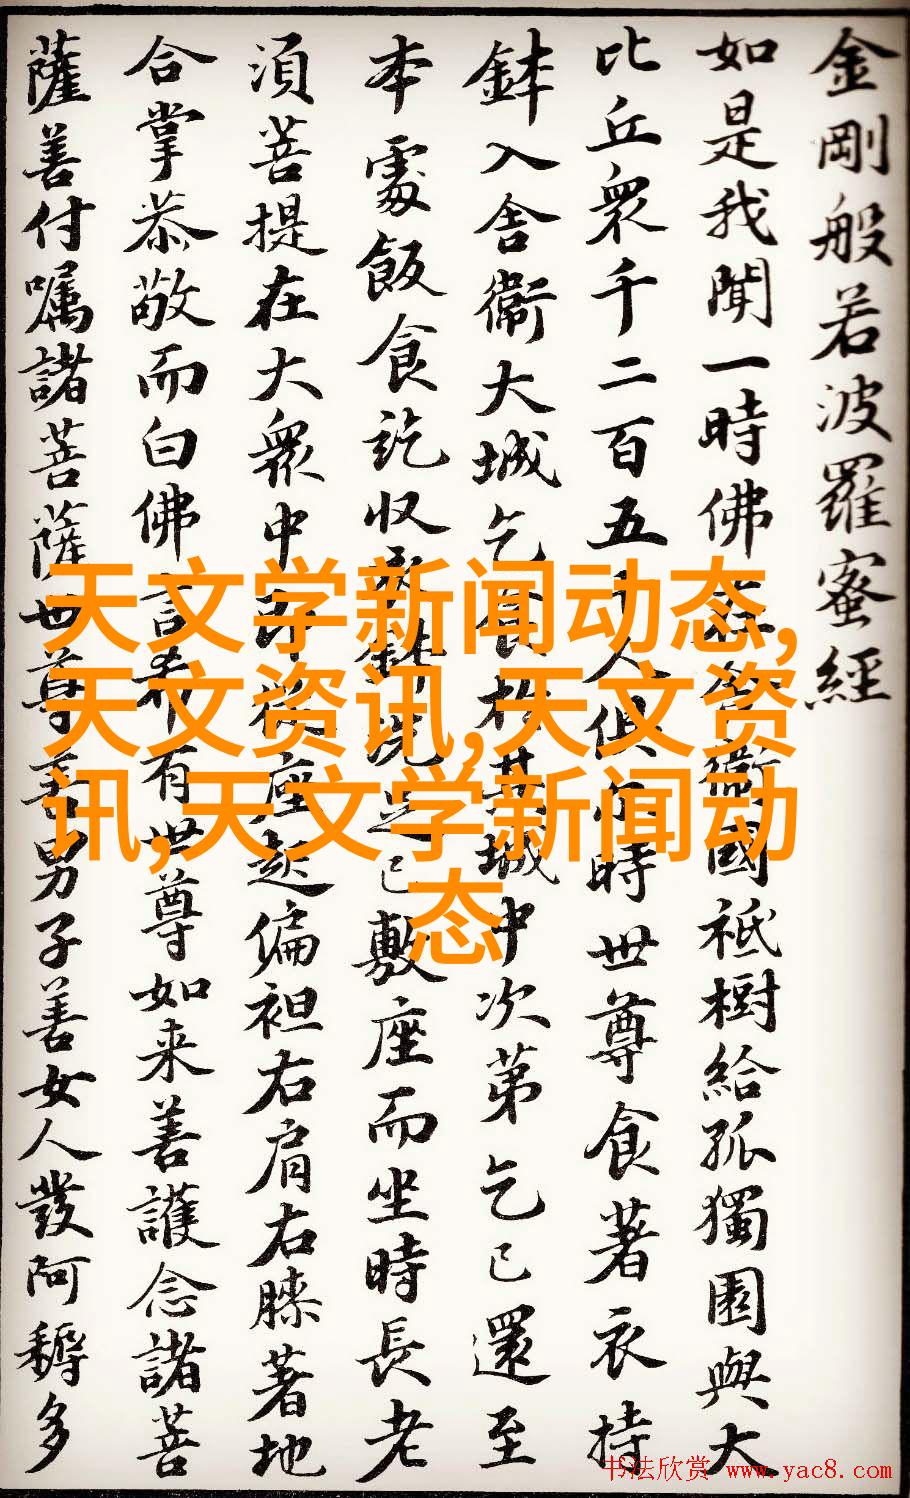 金剛般若波羅蜜經
如是我聞一時佛在舍衞國祇樹給孤獨園與大
比丘衆千二百五十人俱尒時世尊食著衣持
鉢入舍衞大城乞食於其城中次第乞已還至
本處飯食訖收衣鉢洗足已敷座而坐時長老
須菩提在大衆中即從座起偏袒右肩右膝著地
合掌恭敬而白佛言希有世尊如来善護念諸菩
薩善付嘱諸菩薩世尊善男子善女人發阿耨多
天文学新闻动态,
天文资讯,天文资
讯,天文学新闻动
态
书法欣赏 www.yac8.com